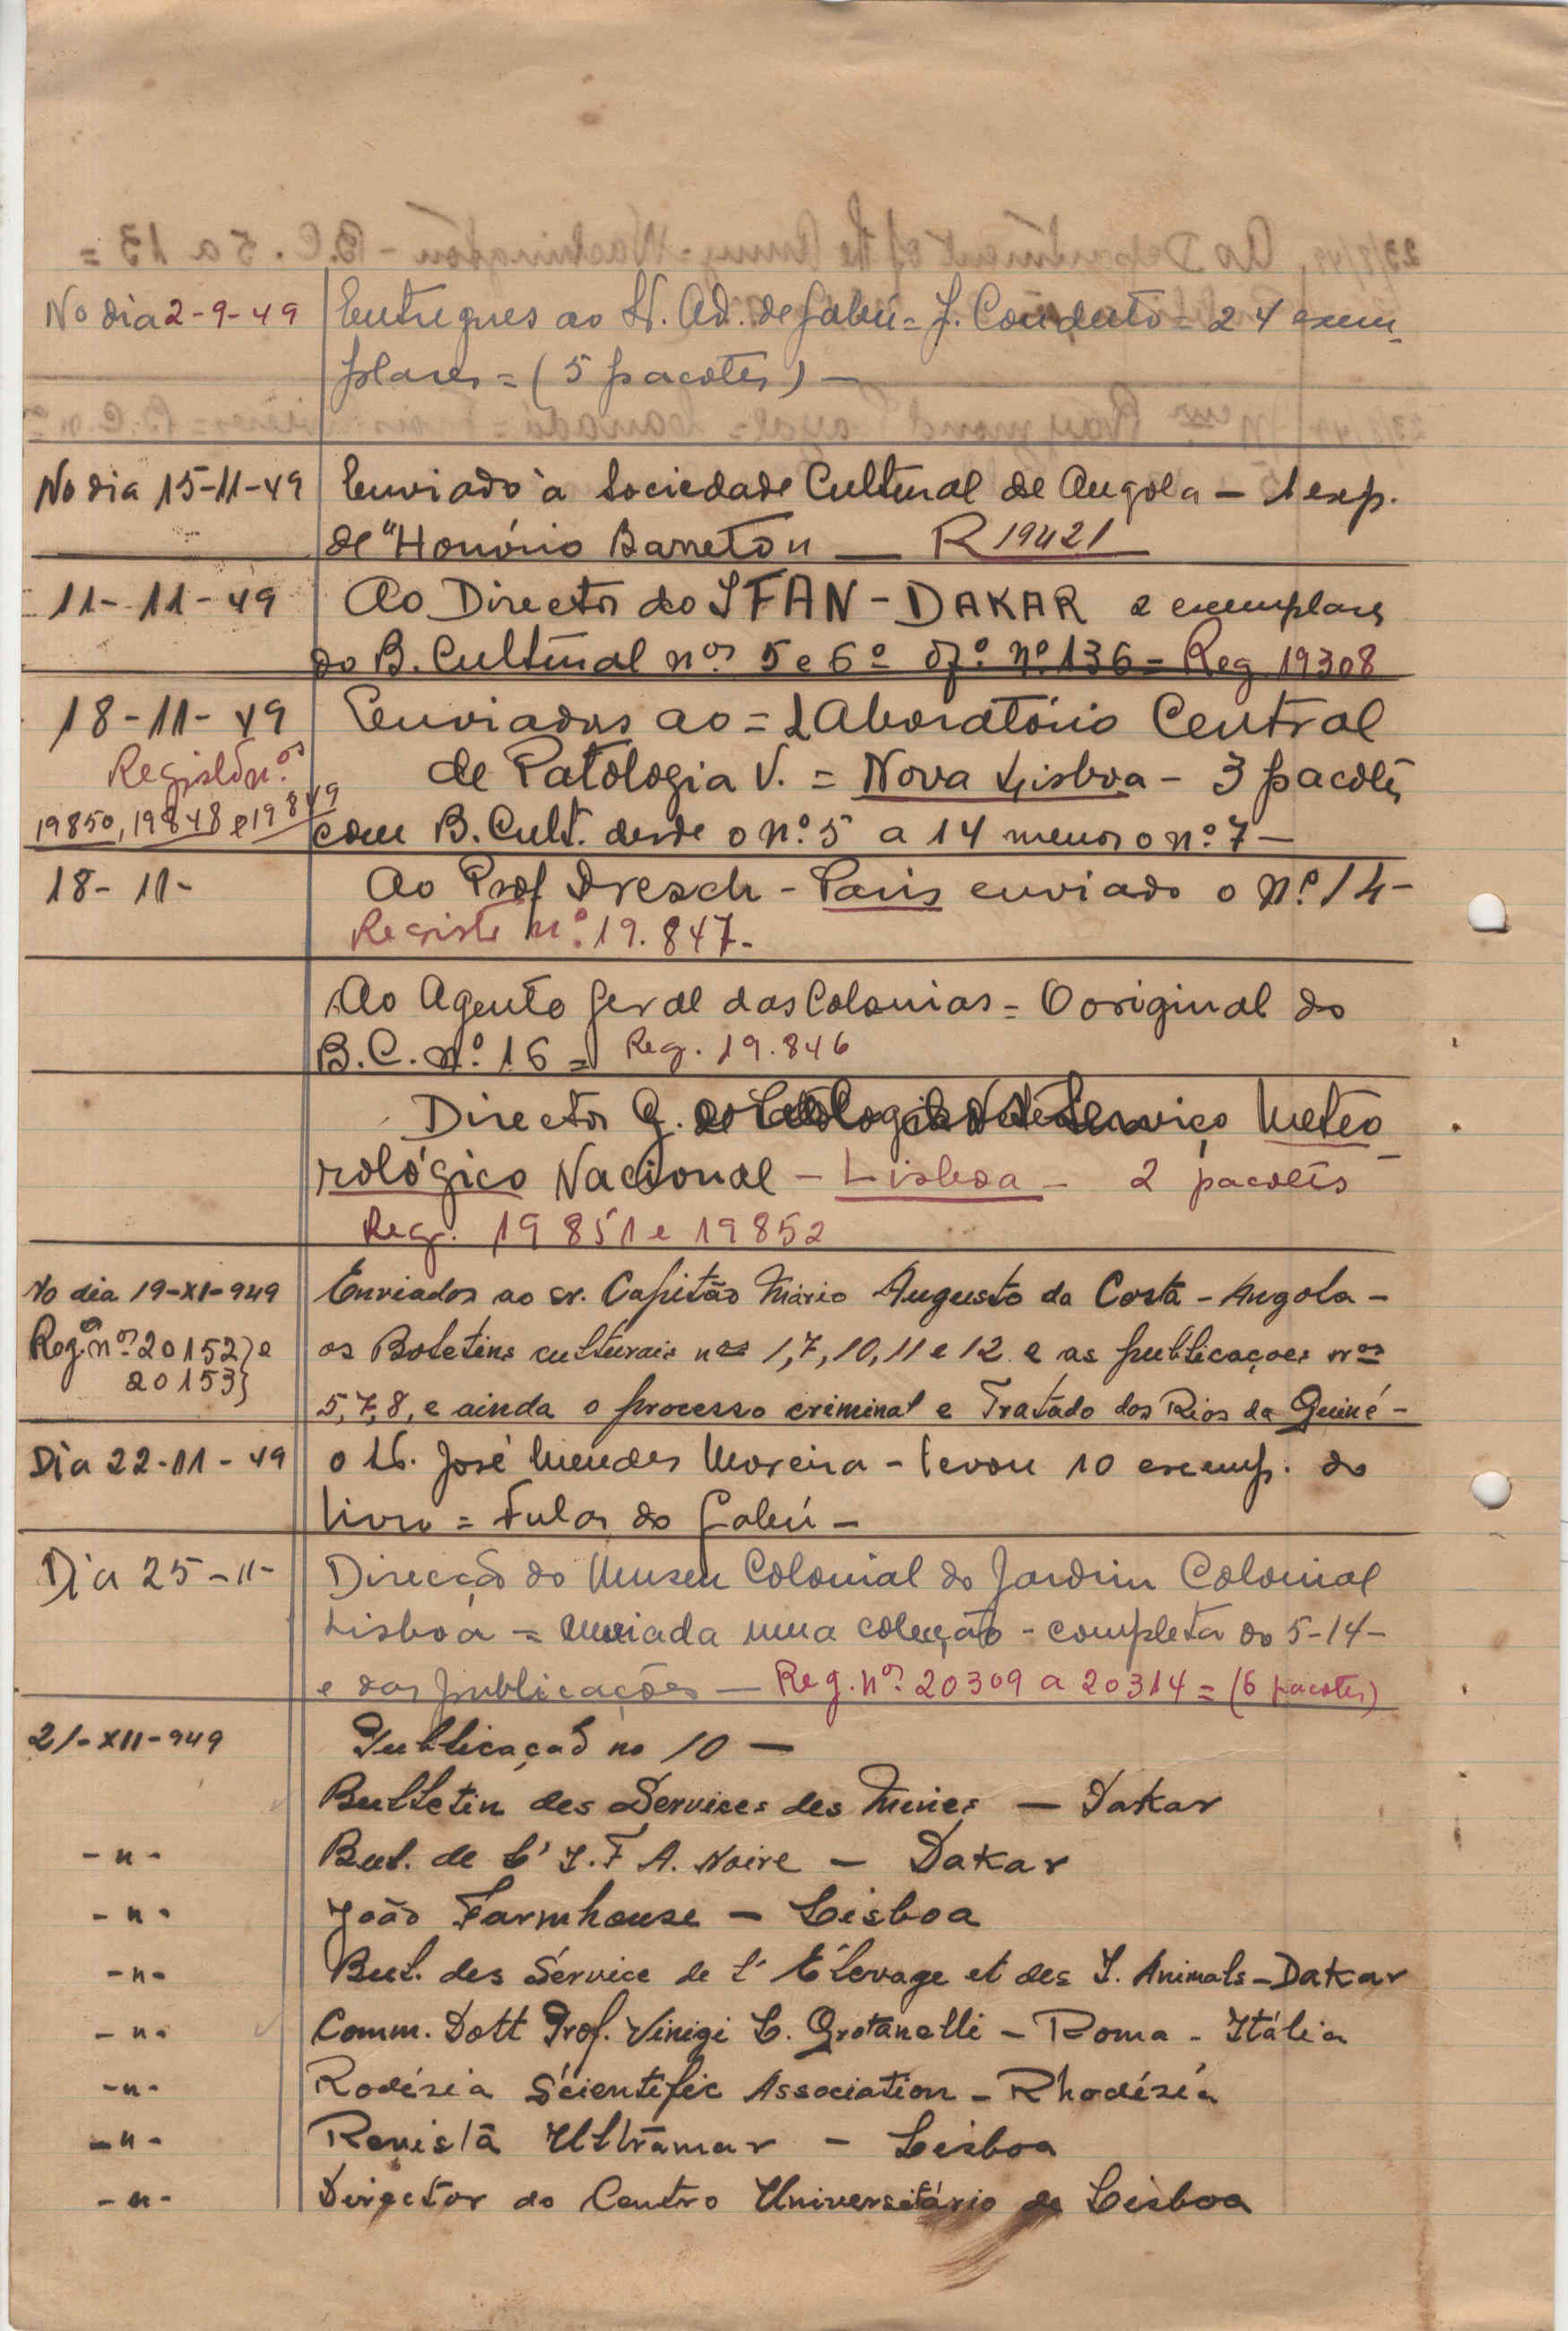 No dia 2-9-49 Entregues ao Sr. Ad. de Gabú = J. Conduto = 24 exem-
plares = (5 pacotes) —
No dia 15-11-49 Enviado à Sociedade Cultural de Angola — 1 exp.
de "Honório Barreto" — R 19421
11-11-49 Ao Director do IFAN - DAKAR 2 exemplares
do B. Cultural nos 5 e 6 = Of.º nº 136 = Reg 19308
18-11-49 Enviados ao = Laboratório Central
Registo n.os de Patologia V. = Nova Lisboa - 3 pacotes
19850, 19848 e 19849 com B. Cult. desde o nº. 5 a 14 menos o nº. 7 —
18-11- Ao Prof Dresch - Paris enviado o nº. 14 -
Registo nº. 19.847.
Ao Agente Geral das Colonias = O original do
B.C. nº. 16 = Reg. 19.846
Director G. do Serviço Meteo-
rológico Nacional - Lisboa - 2 pacotes
Reg. 19851 e 19852
No dia 19-XI-949 Enviados ao sr. Capitão Mário Augusto da Costa - Angola -
Reg. nos 20152) e os Boletins culturais nos 1,7,10,11 e 12 e as publicações nos
20153} 5,7,8, e ainda o processo criminal e Tratado dos Rios da Guiné -
Dia 22-11-49 o Sr. José Mendes Moreira - levou 10 exemp. do
livro = Fulas do Gabú -
Dia 25-11- Direcção do Museu Colonial do Jardim Colonial
Lisboa = enviada uma colecção - completa do 5-14-
e das publicações — Reg. nos 20309 a 20314 = (6 pacotes)
21-XII-949 Publicação no 10 —
Bulletin des Services des Mines — Dakar
-"- Bul. de L' I. F A. Noire — Dakar
-"- João Farmhouse — Lisboa
-"- Bul. des Service de L' Élevage et des I. Animals - Dakar
-"- Comm. Dott Prof. Vinigi L. Grotanelli - Roma - Itália
-"- Rodésia Scientific Association - Rhodésia
-"- Revista Ultramar - Lisboa
-"- Director do Centro Universitário de Lisboa